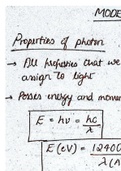 MODE
Properties of photon
→ All properties that we
assign to light
→ Posses energy and momen
E = hν = hc/λ
E (eV) = 12400
λ(A